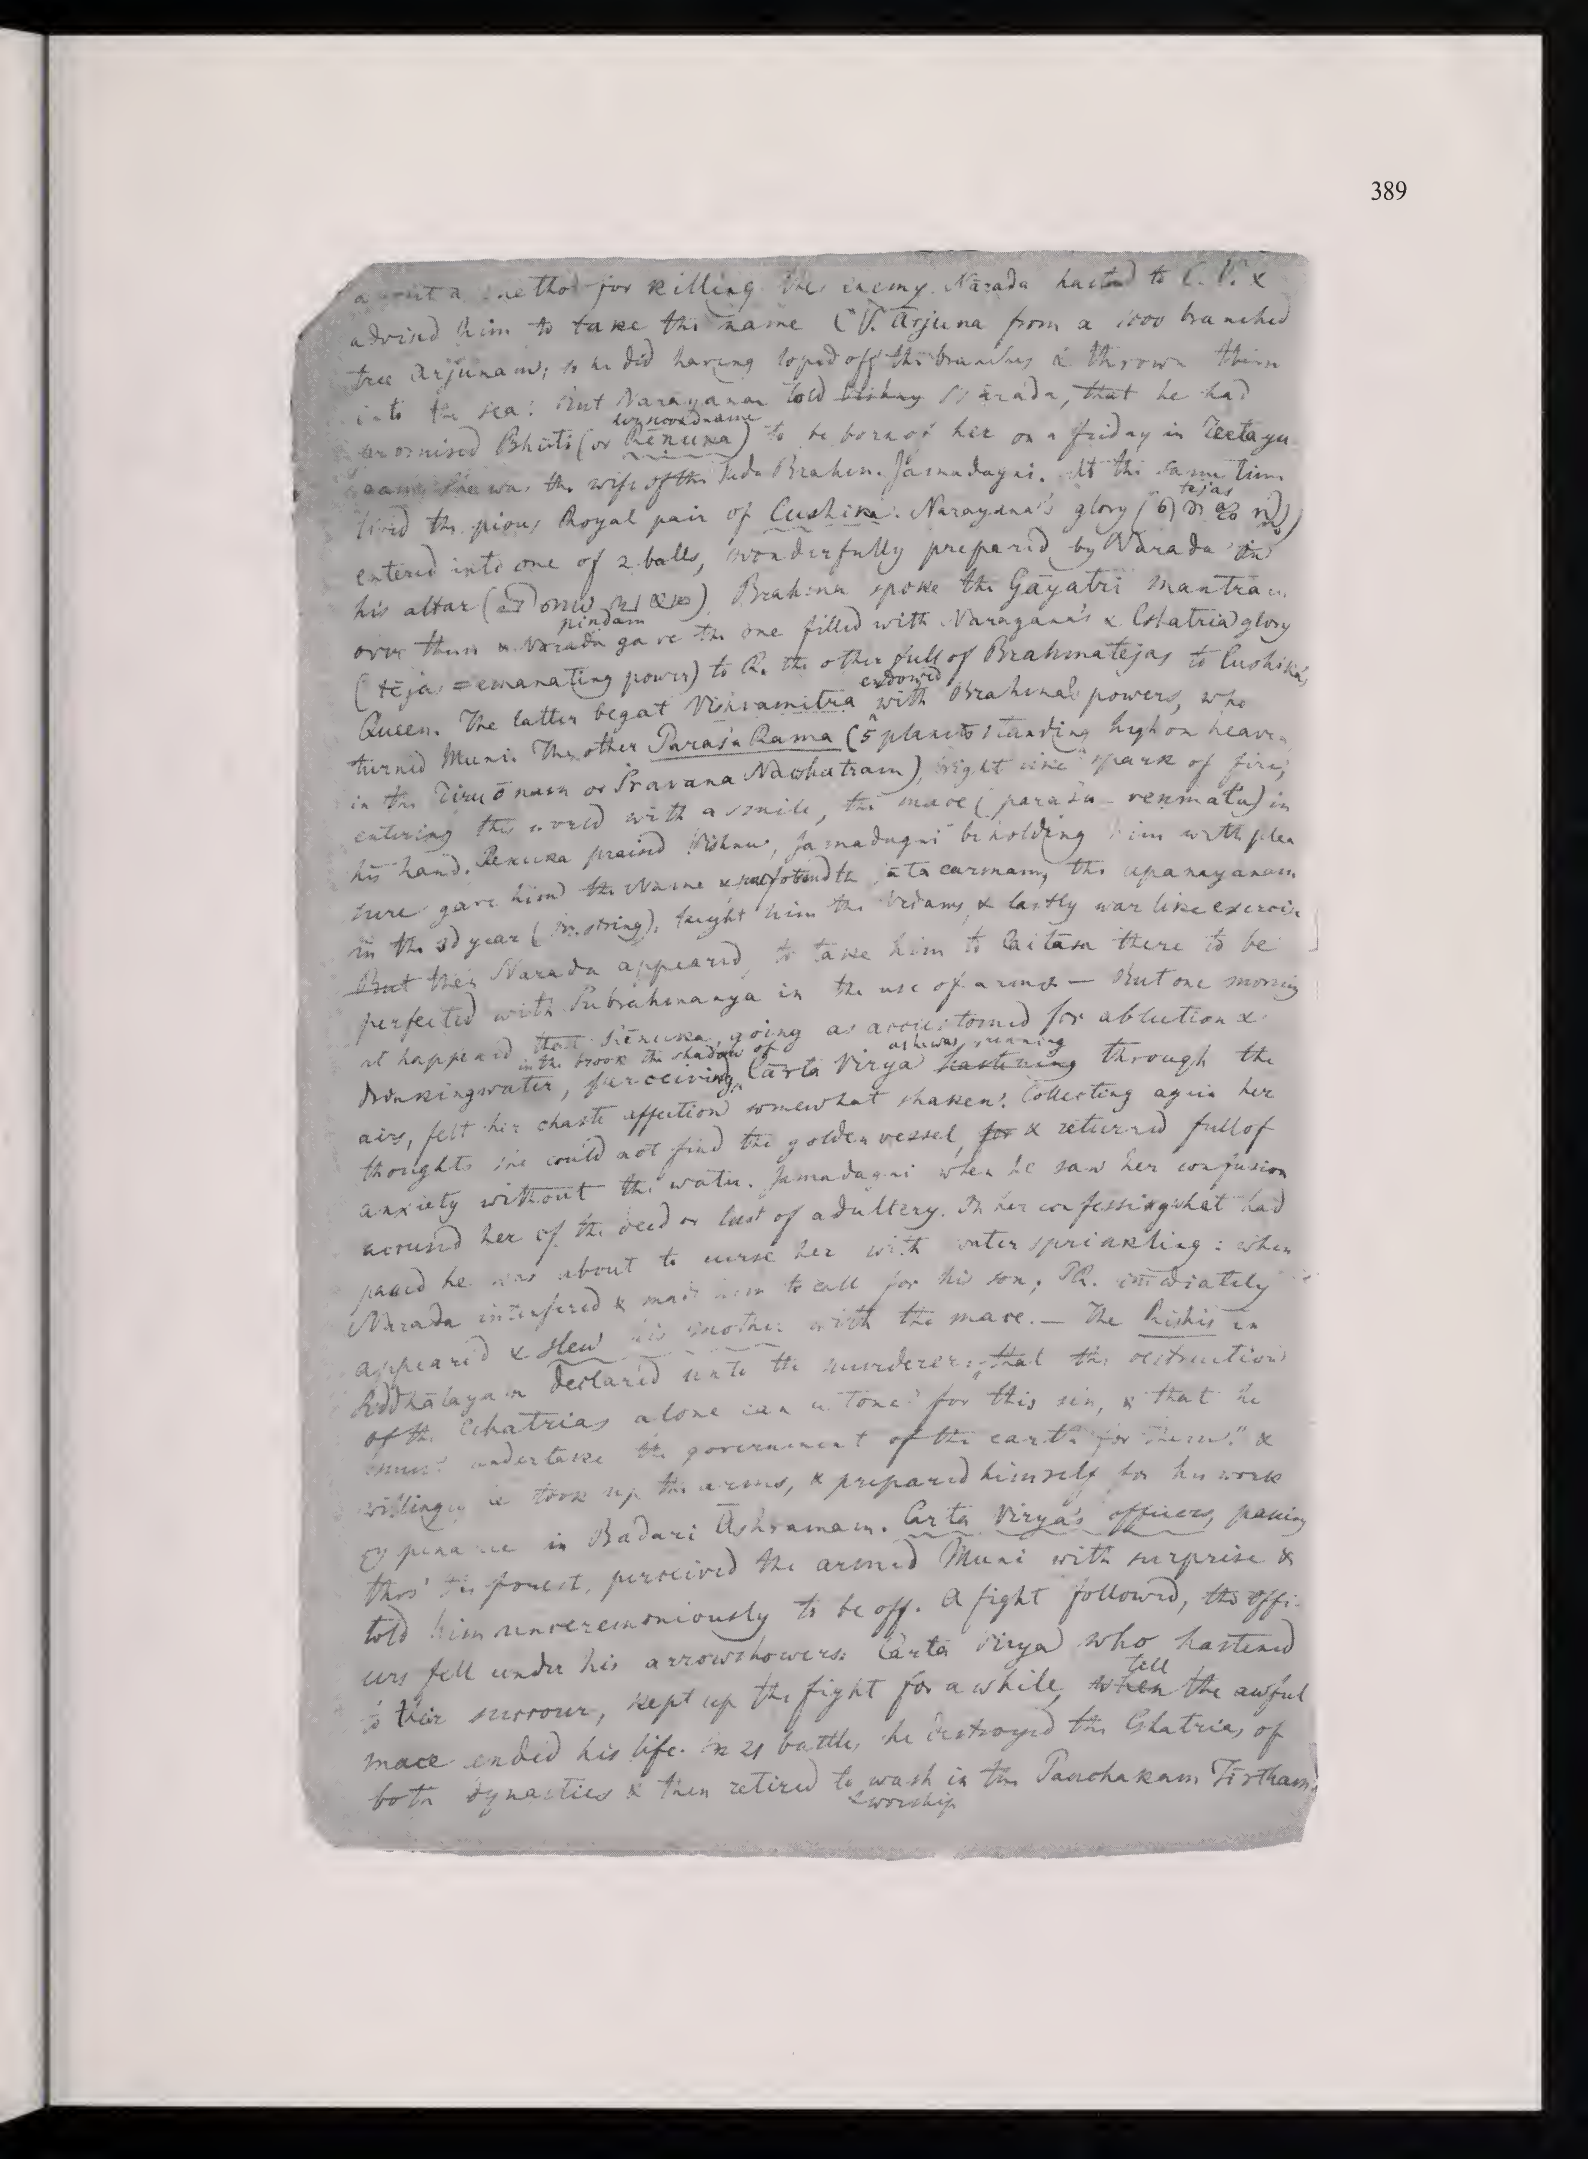 389
a method for killing the enemy. Nārada hasted to C. V. &
advised him to take the name C V. Arjuna from a 1000 branched
tree Arjunam; so he did having loped off the branches & thrown them
into the sea: But Narayanan told Vishnu Nārada, that he had
promised Bhūti (or Rēnuka) to be born of her on a friday in Tretayu
She was the wife of the Brahm. Jamadagni. At the same time
tejas
lived the pious Royal pair of Cushika. Narayana's glory
entered into one of 2 balls, wonderfully prepared by Narada in
his altar Brahma spoke the Gāyatri mantram
pindam
over them & Narada gave the one filled with Narayana's & Cshatria glory
(tējas = emanating power) to R. the other full of Brahmatejas to Cushika's
endowed
Queen. The latter begat Vishvamitra with Brahmal powers, who
turned Muni. The other Parasu Rama (5 planets standing high on heaven
in the Tiruōnam or Sravana Nacshatram), bright like spark of fire,
entering the world with a smile, the mace (parasu - venmalu) in
his hand. Renuka praised Vishnu, Jamadagni beholding him with plea
sure gave him the Name & the jāta carmam, the upanayanam
in the 3d year (Br. string), taught him the Vedams, & lastly war like exercise
But then Narada appeared, to take him to Cailāsa there to be
perfected with Subrahmanya in the use of arms — But one morning
it happened that Rēnuka, going as accustomed for ablution &
in the brook the shadow of as he was running
Drinkingwater, perceiving Cārta Virya hastening through the
airs, felt her chaste affection somewhat shaken. Collecting again her
thoughts she could not find the golden vessel, for & returned full of
anxiety without the water. Jamadagni when he saw her confusion
accused her of the deed or lust of adultery. On her confessing what had
passed he was about to curse her with water sprinkling: when
Narada interfered & made him to call for his son; PR. imediately
appeared & slew his mother with the mace. — The Rishis in
declared unto the murderer, that the destruction
of the Cshatrias alone can atone for this sin, & that he
must undertake the government of the earth for them." &
willingly he took up the arms, & prepared himself for his work
by penance in Badari Āshramam. Carta Virya's officers, passing
thro' the forest, perceived the armed Muni with surprise &
told him unceremoniously to be off. A fight followed, the offi-
cers fell under his arrowshowers. Carta Virya who hastened
till
to their succour, kept up the fight for a while, when the awful
mace ended his life. In 21 battles he destroyed the Cshatrias of
both dynasties & then retired to wash in the Panchakam Tīrtham
& worship